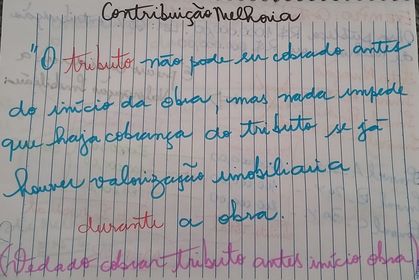 Contribuição Melhoia
"O tributo não pode ser cobrado antes
do início da obra, mas nada impede
que haja cobrança do tributo se já
houver valorização imobiliaria
durante a obra.
(Vedado cobrar tributo antes início obra)